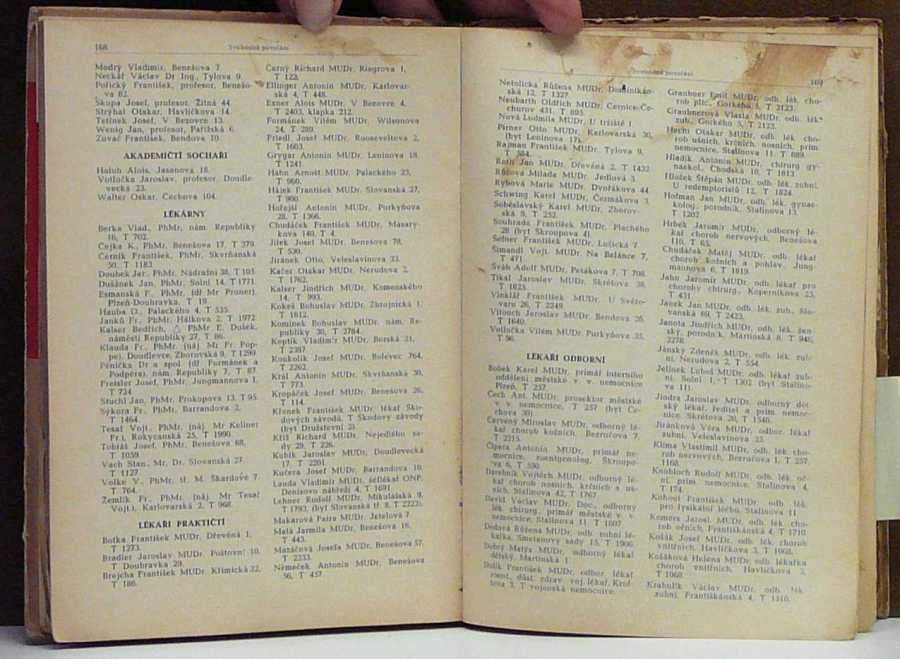 168
Svobodná povolání
Modrý Vladimír, Benešova 7.
Neckář Václav Dr Ing., Tylova 9.
Pořický František, profesor, Benešova 82.
Skupa Josef, profesor, Žitná 44.
Strýhal Otakar, Havlíčkova 14.
Tetínek Josef, V Bezovce 13.
Wenig Jan, profesor, Pařížská 6.
Zuvač František, Bendova 10.
AKADEMIČTÍ SOCHAŘI
Hatuh Alois, Jasanová 18.
Votlučka Jaroslav, profesor, Doudle-
vecká 23.
Walter Oskar, Čechova 104.
LÉKÁRNY
Berka Vlad., PhMr, nám. Republiky
16, T 702.
Cejka K., PhMr. Benešova 17, T 279.
Černík František, PhMr. Skvrňanská
50, T 1183.
Doubek Jar., PhMr. Nádražní 38, T 105.
Dušánek Jan, PhMr. Solní 14, T 1771.
Esmanská F., PhMr. (dř Mr Proner),
Plzeň-Doubravka, T 19.
Hauba O., Palackého 4, T 535.
Janků Fr., PhMr. Hálkova 2, T 1972.
Kaiser Bedřich, PhMr E. Dušek,
náměstí Republiky 27, T 86.
Klauda Fr., PhMr. (náj. Mr Fr. Pop-
pe), Doudlevce, Zborovská 9, T 1299.
Pěnička Dr a spol. (dř Formánek a
Podpěra), nám. Republiky 7, T 87
Preisler Josef, PhMr. Jungmannova 1,
T 724
Stuchl Jan, PhMr. Prokopova 13, T 95
Sýkora Fr., PhMr. Barrandova 2,
T 1464
Tesař Vojt., PhMr. (náj. Mr Kellner
Fr.), Rokycanská 25, T 1990.
Tobrát Josef, PhMr. Benešova 68,
T 1059.
Vach Stan., Mr. Dr. Slovanská 27.
T 1127.
Volke V., PhMr. tř. M. Škardové 7
T 764.
Zemlík Fr., PhMr. (náj. Mr Tesař
Vojt.), Karlovarská 2, T 968.
LÉKAŘI PRAKTIČTÍ
Botka František MUDr, Dřevěná 1,
T 1273.
Bradler Jaroslav MUDr. Poštovní 10,
T Doubravka 29.
Brejcha František MUDr. Klimická 22,
T 186.
Černý Richard MUDr. Riegrova 1,
T 122.
Ellinger Antonín MUDr, Karlovar-
ská 4, T 448.
Exner Alois MUDr. V Bezovce 4,
T 2403, klapka 212.
Formánek Vilém MUDr. Wilsonova
24, T 289.
Friedl Josef MUDr. Rooseveltova 2,
T 1663.
Grygar Antonín MUDr. Leninova 18
T 1241
Hahn Arnošt MUDr. Palackého 25,
T 966.
Hájek František MUDr. Slovanská 27,
T 900
Hofejší Antonín MUDr, Purkyňova
28, T 1368.
Chudáček František MUDr, Masary-
kova 149, T 4.
Jílek Josef MUDr, Benešova 78,
T 530.
Jiránek Otto, Veleslavínova 33.
Kačer Otakar MUDr, Nerudova 2.
T 1762.
Kaiser Jindřich MUDr. Komenského
14, T 993.
Kokeš Bohuslav MUDr. Zbrojnická 1,
T 1812.
Kominek Bohuslav MUDr, nám. Re-
publiky 30, T 2784.
Koptík Vladimír MUDr, Borská 31,
T 2387.
Koukolík Josef MUDr. Bolevec 764,
T 2262.
Král Antonín MUDr, Skvrňanská 36,
T 773.
Kropáček Josef MUDr, Benešova 26,
T 114.
Křenek František MUDr, lékař Ško-
dových závodů, T Škodovy závody
(byt Družstevní 2)
Kříž Richard MUDr, Nejedlého sa-
dy 29, T 226.
Kubík Jaroslav MUDr, Doudlevecká
17, T 2201.
Kučera Josef MUDr, Barrandova 10.
Lauda Vladimír MUDr, šéflékař ONP,
Denisovo nábřeží 4, T 1691.
Lehner Rudolf MUDr, Mikulášská 9,
T 1793, (byt Slovanská tř. 8, T 2223).
Makarová Faira MUDr. Jetelová 7.
Malá Jarmila MUDr, Benešova 16,
T 443.
Matačová Josefa MUDr, Benešova 57,
T 2233.
Němeček Antonín MUDr, Benešova
56, T 437
Svobodná povolání
169
Netolička Růžena MUDr, Dominikán-
ská 13, T 1327.
Neubarth Oldřich MUDr, Černice-Če-
churov 431, T 895.
Nová Ludmila MUDr, U tržiště 1
Pirner Otto MUDr, Karlovarská 36,
(byt Leninova 17).
Rajman František MUDr, Tylova 9,
T 554.
Rath Jan MUDr, Dřevěná 2, T 1432
Růžová Milada MUDr, Jedlová 3.
Rybová Marie MUDr, Dvořákova 44
Schwing Karel MUDr, Čermákova 3.
Soběslavský Karel MUDr, Zborov-
ská 9, T 232.
Souhrada František MUDr, Plachého
28 (byt Skroupova 4).
Šefner František MUDr, Lužická 7.
Šimandl Vojt. MUDr, Na Balánce 7,
T 471
Šváb Adolf MUDr, Patákova 7, T 706
Tikal Jaroslav MUDr, Skrétova 38,
T 1823.
Vinklář František MUDr, U Světo-
varu 26, T 2249.
Vítouch Jaroslav MUDr, Bendova 26,
T 1640.
Votlučka Vilém MUDr, Purkyňova 25,
T 96.
LÉKAŘI ODBORNÍ
Bobek Karel MUDr, primář interního
oddělení městské v. v. nemocnice
Plzeň, T 257
Čech Ant. MUDr, prosektor městské
v. v. nemocnice, T 257 (byt Če-
chova 39).
Červený Miroslav MUDr, odborný lé-
kař chorob kožních, Bezručova 7,
T 2215.
Čipera Antonín MUDr, primář ne-
mocnice, roentgenolog, Škroupo-
va 6, T 590.
Davidník Vojtěch MUDr, odborný lé-
kař chorob nosních, krčních a uš-
ních, Stalinova 42, T 1767.
Deyl Václav MUDr, Doc., odborný
lék. chirurg, primář městské v. v.
nemocnice, Stalinova 11, T 1607
Dodová Růžena MUDr, odb. zubní lé-
kařka, Smetanovy sady 15, T 1906.
Dobrý Matyáš MUDr, odborný lékař
dětský, Martinská 1.
Dolík František MUDr, odbor. lékař
Graubner Emil MUDr, odb. lék. cho-
rob plic, Gorkého 5, T 2123.
Graubnerová Vlasta MUDr, odb. lék.
zub., Gorkého 5, T 2123.
Hecht Otakar MUDr, odb. lék. cho-
rob ušních, krčních, nosních, prim.
nemocnice, Stalinova 11. T 889.
Hladík Antonín MUDr, chirurg gy-
naekol., Chodská 10, T 1813
Hložek Štěpán MUDr, odb. lék. zubní,
U redemptoristů 12, T 1824.
Hofman Jan MUDr, odb. lék. gynae-
kolog., porodník, Stalinova 13.
T 1202
Hrbek Jaromír MUDr, odborný lé-
kař chorob nervových, Benešova
110, T 63.
Chudáček Matěj MUDr, odb. lékař
chorob kožních a pohlav., Jung-
mannova 6, T 1819.
Jahn Jaromír MUDr, odb. lékař pro
choroby chirurg., Koperníkova 23,
T 431
Janek Jan MUDr, odb. lék. zub., Slo-
vanská 69, T 2423.
Janota Jindřich MUDr, odb. lék. žen-
ský, porodník, Martinská 8, T 948,
2278.
Jánský Zdeněk MUDr, odb. lék. zub-
ní, Nerudova 2, T 554
Jelínek Luboš MUDr, odb. lékař zub-
ní, Solní 1, T 1302 (byt Stalino-
va 11).
Jindra Jaroslav MUDr, odborný dět-
ský lékař, ředitel a prim. nemoc-
nice, Skrétova 20, T 1340.
Jiránková Věra MUDr, odbor. lékař
zubní, Veleslavínova 33.
Klíma Vlastimil MUDr, odb. lék. cho-
rob nervových, Bezručova 1, T 257,
1168.
Knobloch Rudolf MUDr, odb. lék. oč-
ní, prim. nemocnice, Stalinova 4,
T 174
Kohout František MUDr, odb. lék.
pro fysikální léčbu, Stalinova 11
Komera Jarosl. MUDr, odb. lék. cho-
rob očních, Františkánská 4, T 1710
Košák Josef MUDr, odb. lék. chorob
vnitřních, Havlíčkova 3, T 1068.
Košáková Helena MUDr, odb. lékařka
chorob vnitřních, Havlíčkova 3,
T 1068.
Krahulík Václav MUDr, odb. lék.
zubní, Františkánská 4, T 1310.